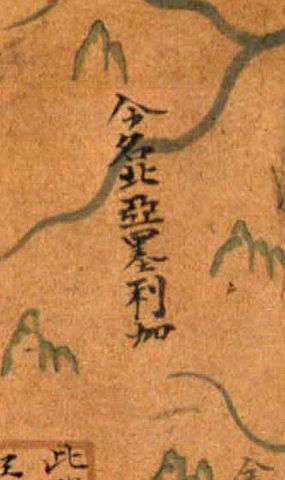 今名北亞墨利加
此
金